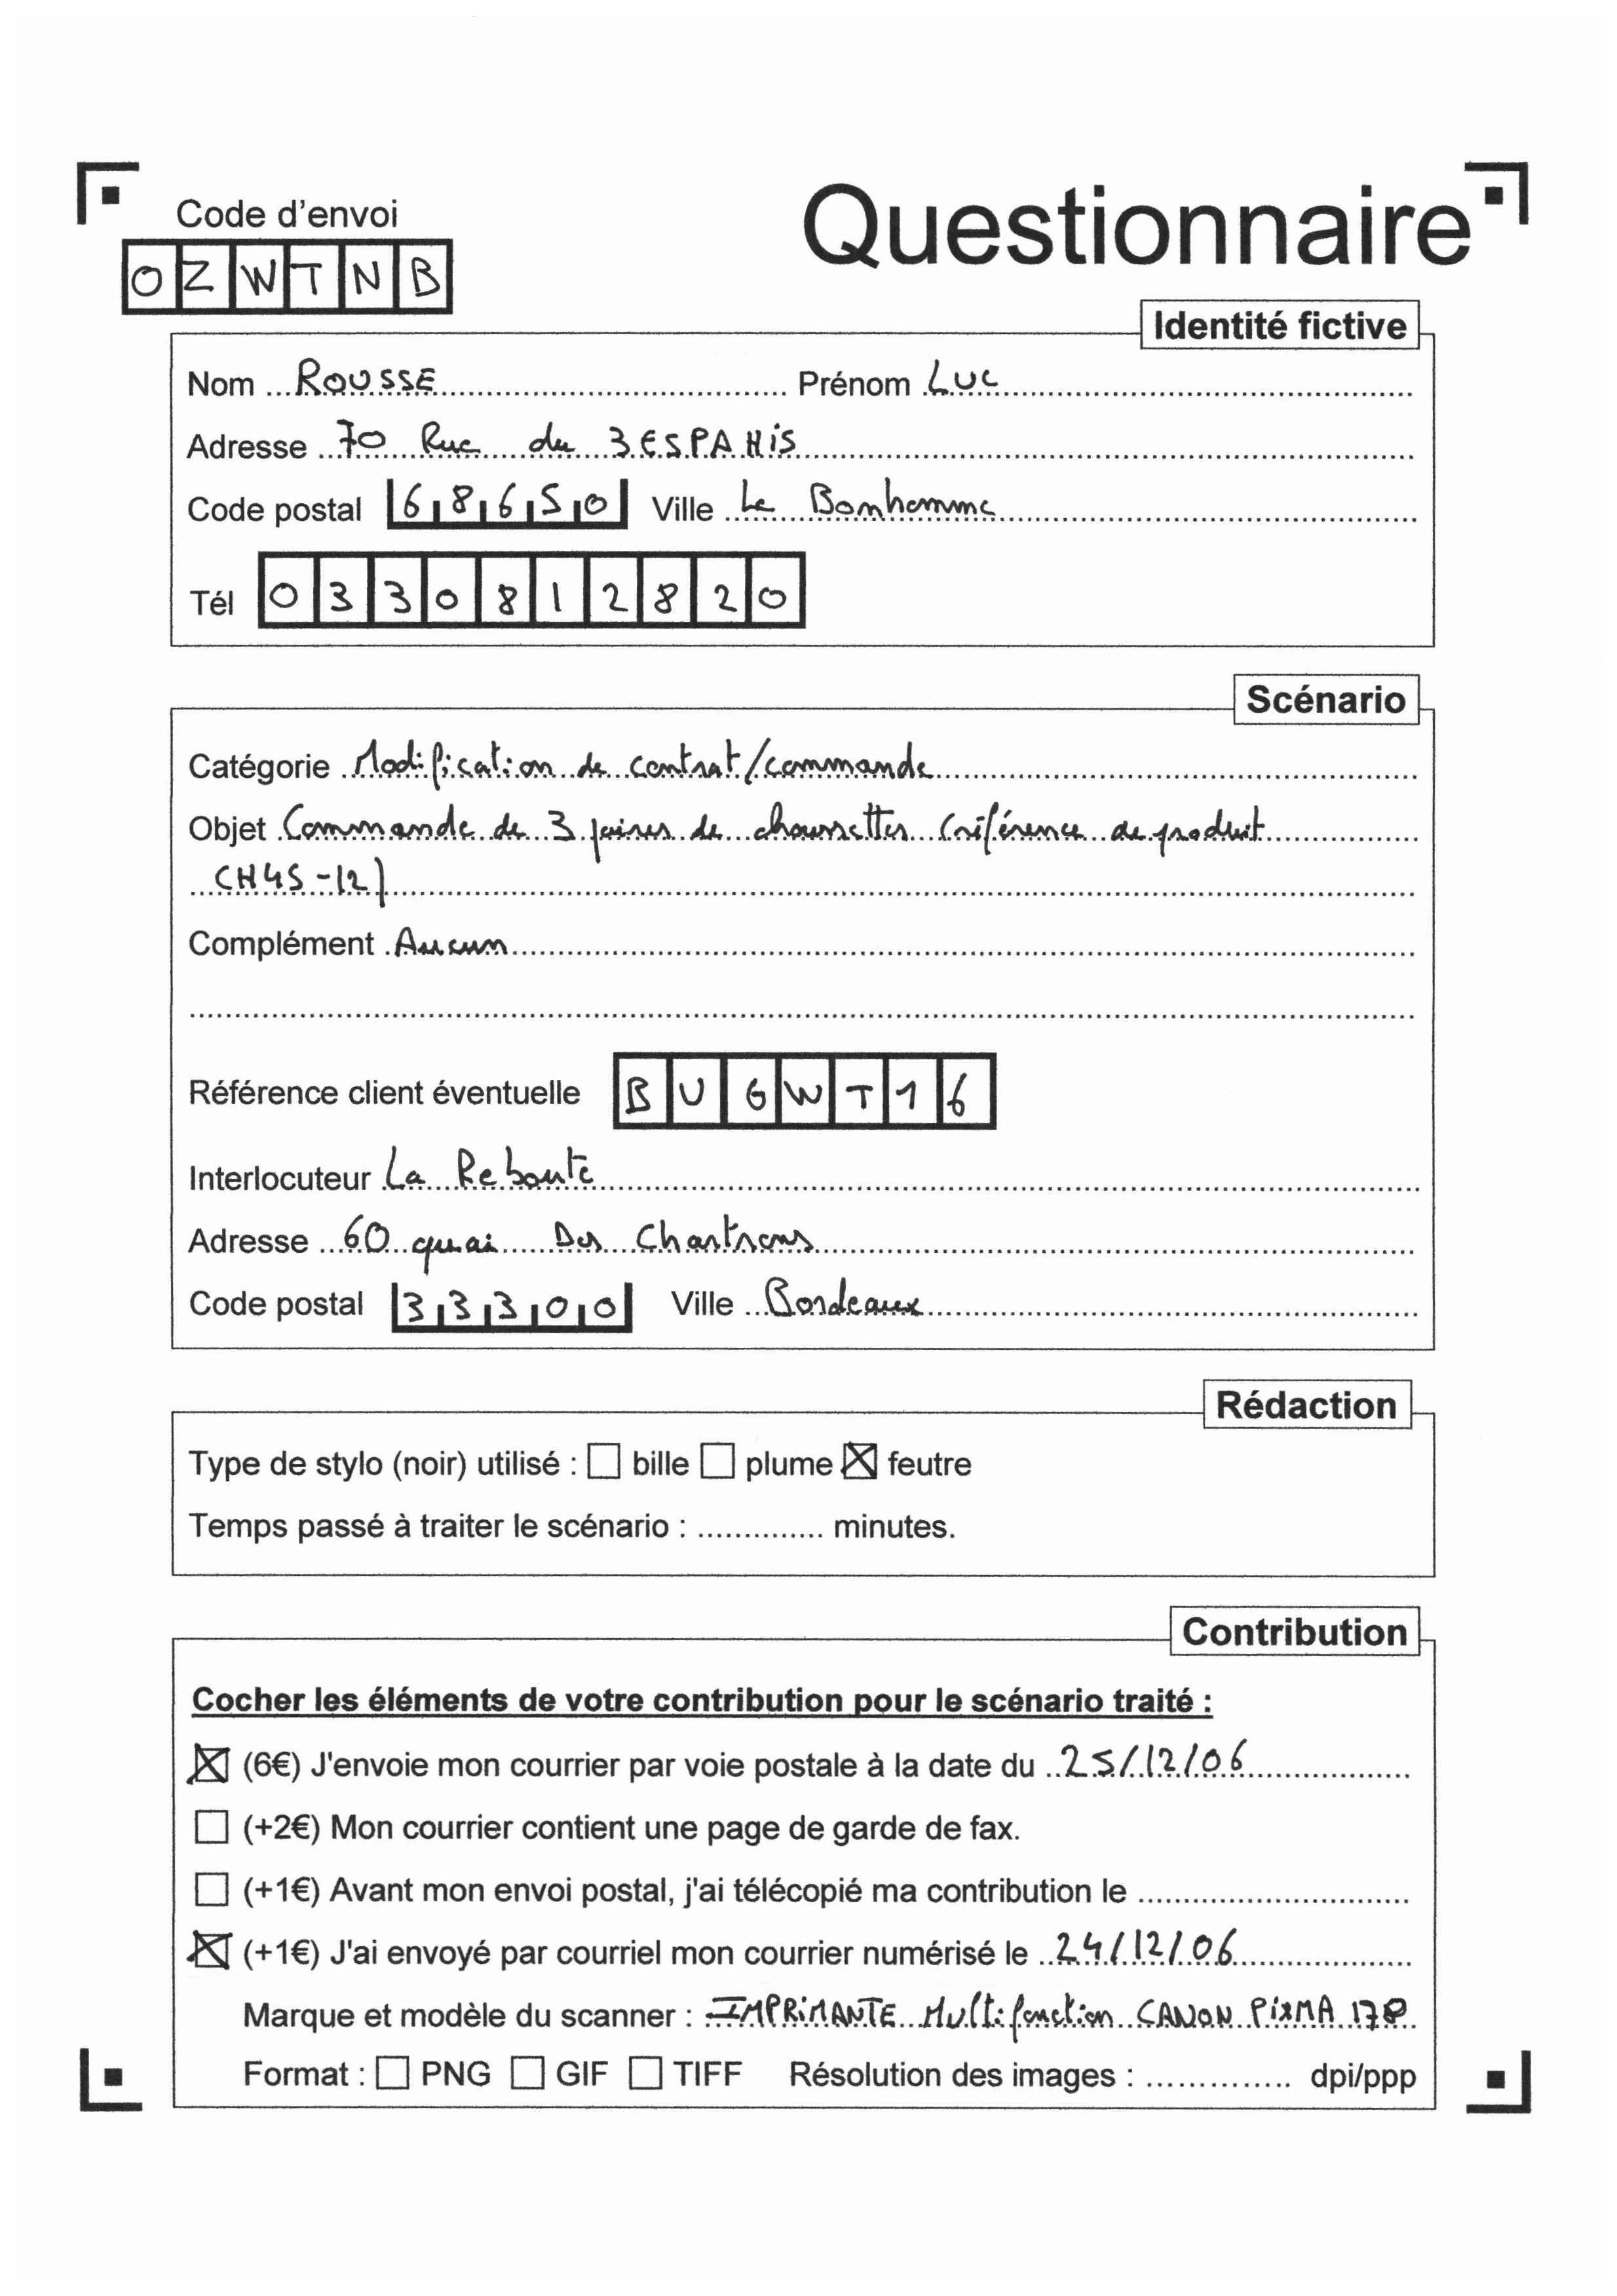 Code d'envoi
Questionnaire
OZWTNB
Identité fictive
Nom ROUSSE Prénom LUC
Adresse 70 Rue du 3ESPAHIS
Code postal 68650 Ville Le Bonhomme
Tél 0330812820
Scénario
Catégorie Modification de contrat/commande
Objet Commande de 3 paires de chaussettes (référence de produit
CH45-12)
Complément Aucun
Référence client éventuelle BUGWT16
Interlocuteur La Reboute
Adresse 60 quai Des Chartrons
Code postal 33300 Ville Bordeaux
Rédaction
Type de stylo (noir) utilisé : bille plume feutre
Temps passé à traiter le scénario : .............. minutes.
Contribution
Cocher les éléments de votre contribution pour le scénario traité :
(6€) J'envoie mon courrier par voie postale à la date du 25/12/06
(+2€) Mon courrier contient une page de garde de fax.
(+1€) Avant mon envoi postal, j'ai télécopié ma contribution le
(+1€) J'ai envoyé par courriel mon courrier numérisé le 24/12/06
Marque et modèle du scanner : IMPRIMANTE Multifonction CANON PIXMA
Format : PNG GIF TIFF Résolution des images : .............. dpi/ppp